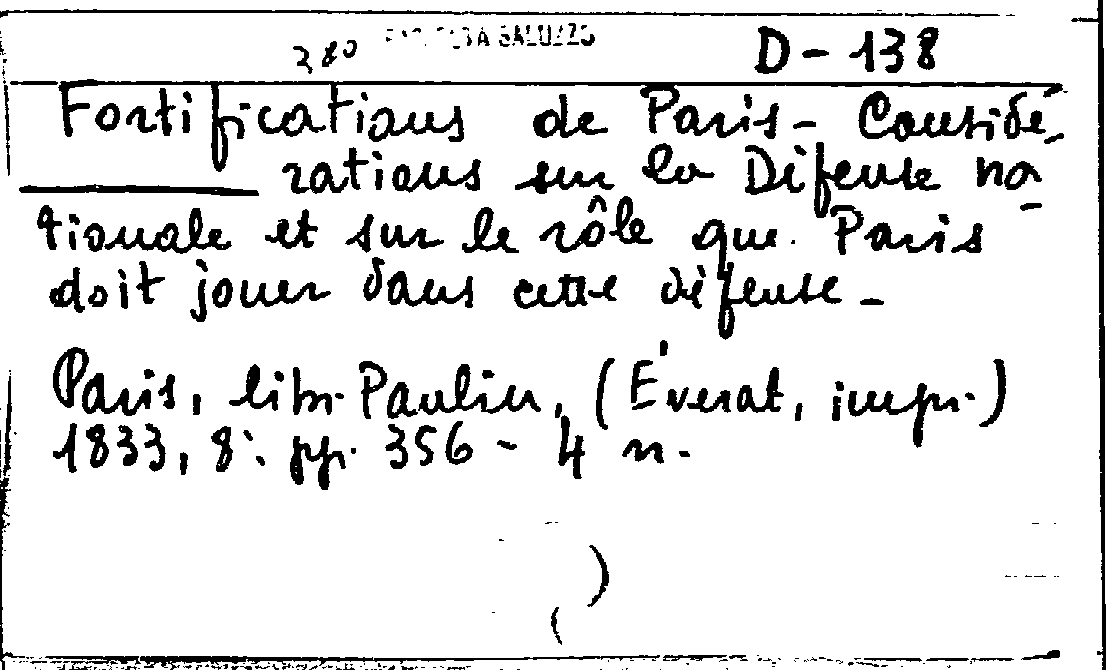 380 SALUZZO D-138
Fortifications de Paris - Considé-
rations sur la Défense na-
tionale et sur le rôle que Paris
doit jouer dans cette défense -
Paris, libr. Paulin, (Éverat, impr.)
1833, 8: pp. 356 - 4 n.